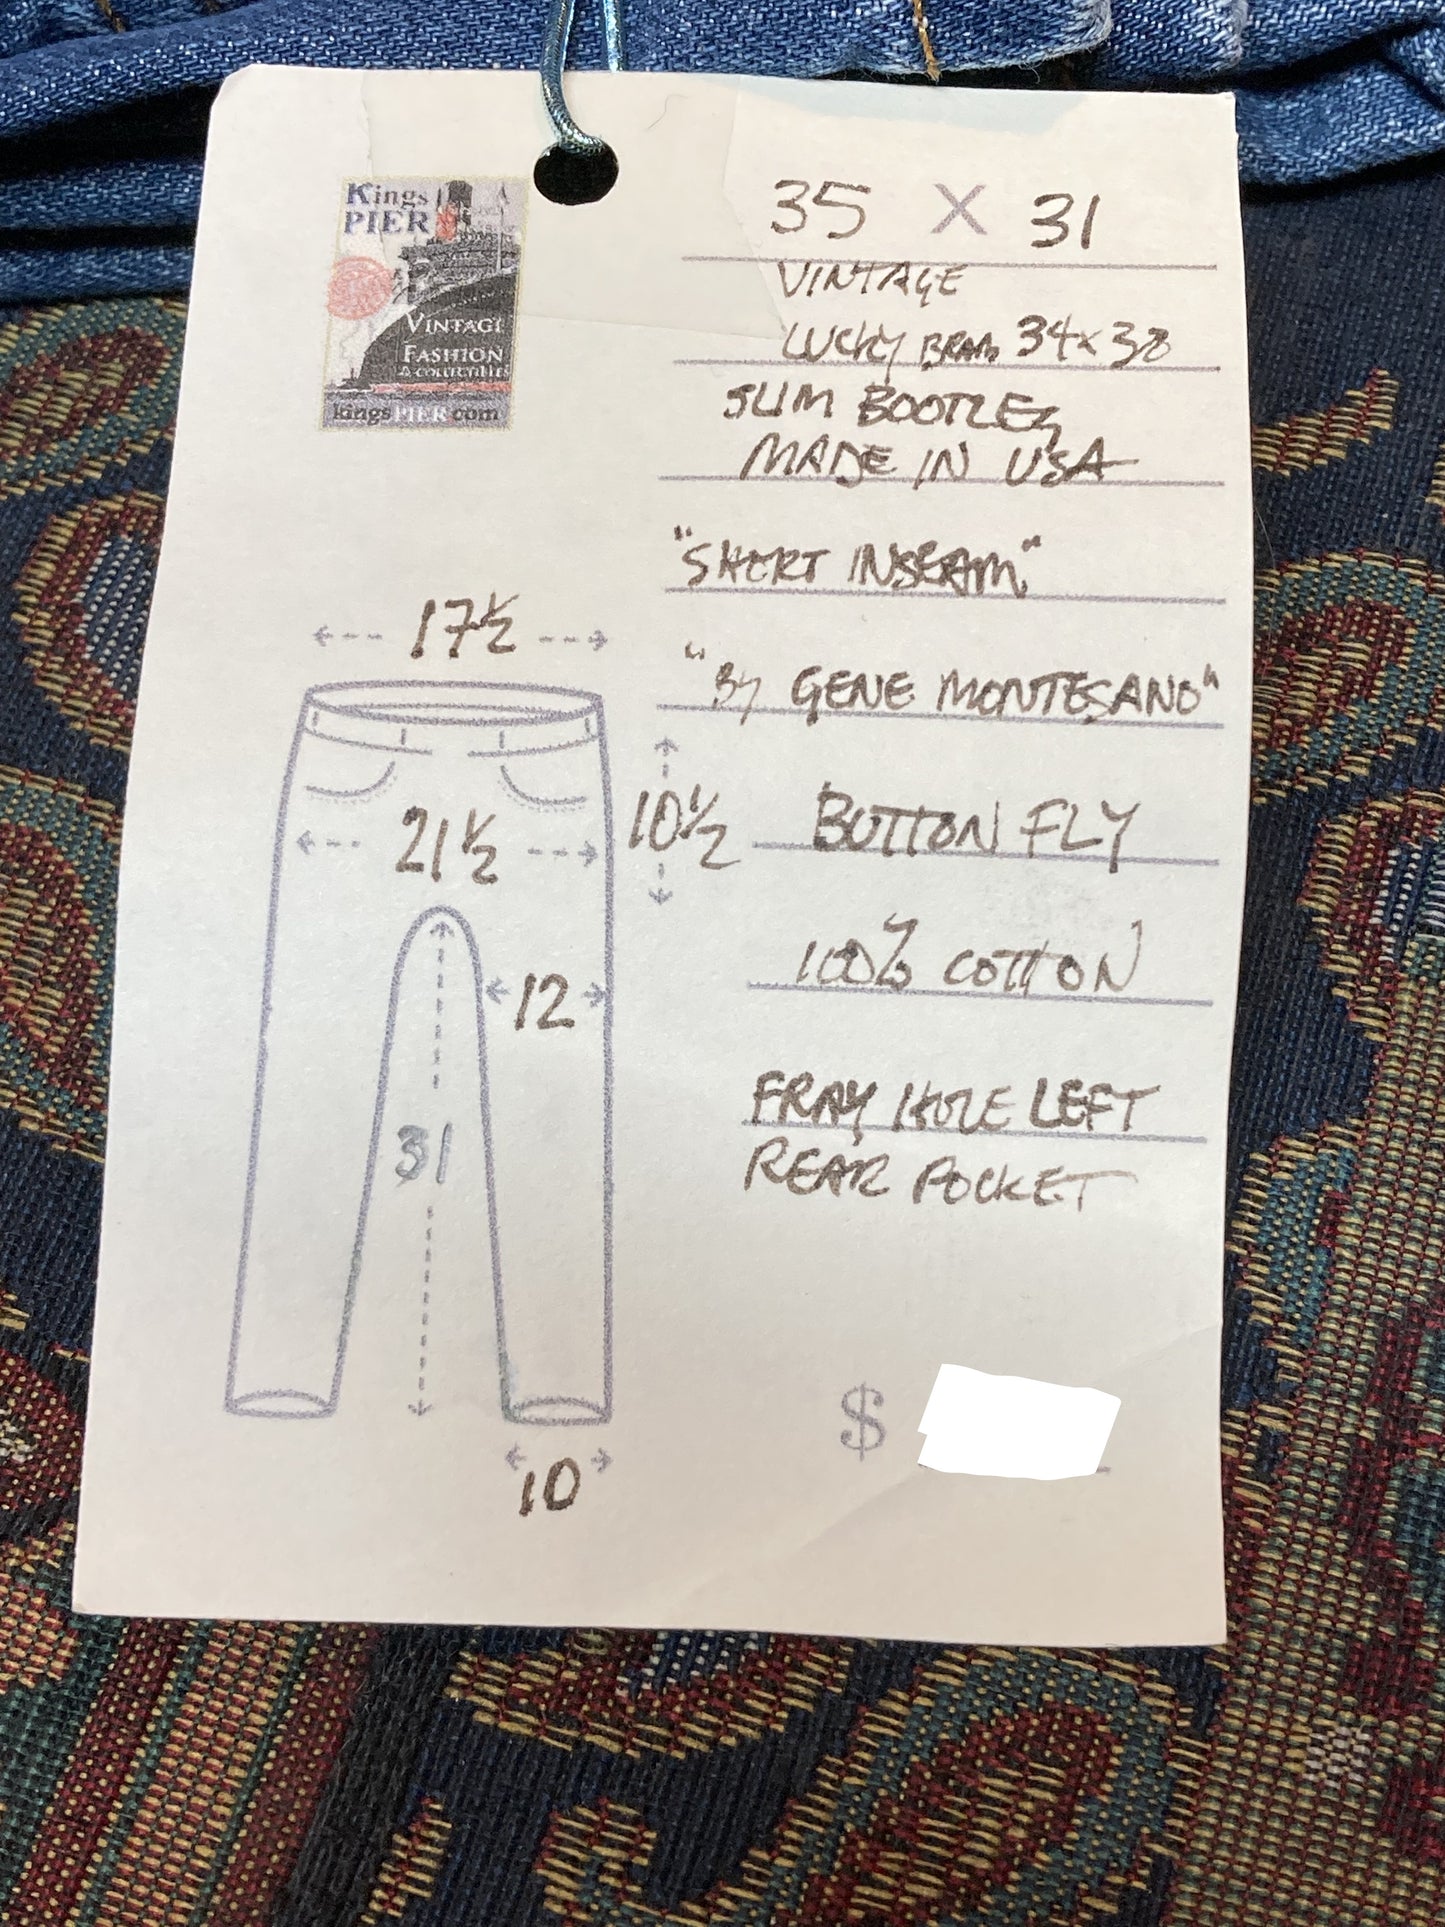 Kings
PIER
VINTAGE
FASHION
& COLLECTIBLES
kingsPIER.com
35 X 31
VINTAGE
LUCKY BRAND 34x38
SLIM BOOTLEG
MADE IN USA
"SHORT INSEAM"
"By GENE MONTESANO"
17½
21½
10½
BUTTON FLY
12
100% COTTON
31
FRAY HOLE LEFT
REAR POCKET
$
10